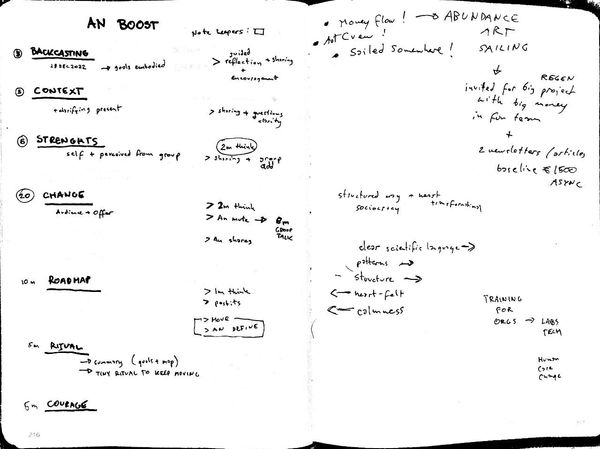 AN BOOST
Note keepers:
③ BACKCASTING
28 DEC 2022 → goals embodied
guided
> reflection + sharing
+
encouragement
CONTEXT
+ clarifying present
> sharing + questions
clarity
⑥ STRENGHTS
self + perceived from group
2m think
> sharing + group
add
⑳ CHANGE
Audience + Offer
> 2m think
> An mute → 8m
GROUP
TALK
> An shares
10m ROADMAP
> 1m think
> postits
> MOVE
> AN DEFINE
5m RITUAL
→ summary (goals + map)
→ TINY RITUAL TO KEEP MOVING
5m COURAGE
216
• Money flow! → ABUNDANCE
• Art Crew! ART
• Sailed Somewhere! SAILING
REGEN
invited for big project
with big money
in fun team
+
2 newsletters/articles
baseline €1500
ASYNC
structured way + heart
sociocracy transformational
clear scientific language →
patterns →
structure →
← heart-felt
← calmness
TRAINING
FOR
ORGS → LABS
TECH
Human
Core
Change